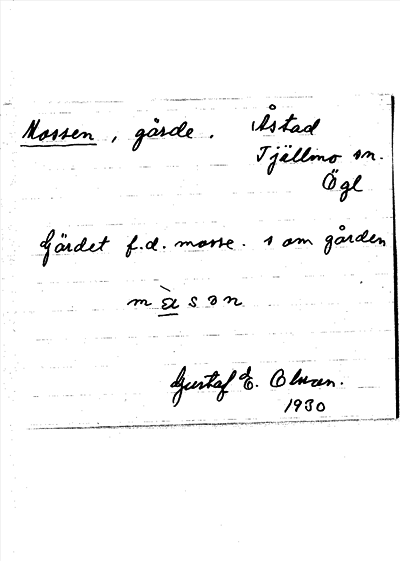 Mossen, gärde. Åstad
Tjällmo sn.
Ögl
Gärdet f.d. mosse. som gården
måsən
Gustaf E. Olsson.
1930